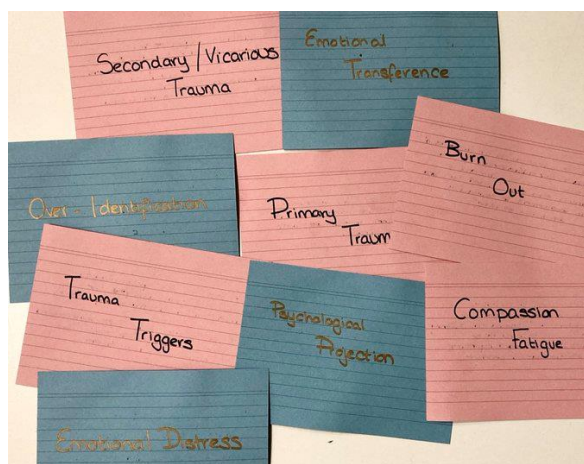 Secondary / Vicarious
Trauma
Emotional
Transference
Over - Identification
Primary
Traum
Burn
Out
Trauma
Triggers
Psychological
Projection
Compassion
Fatigue
Emotional Distress